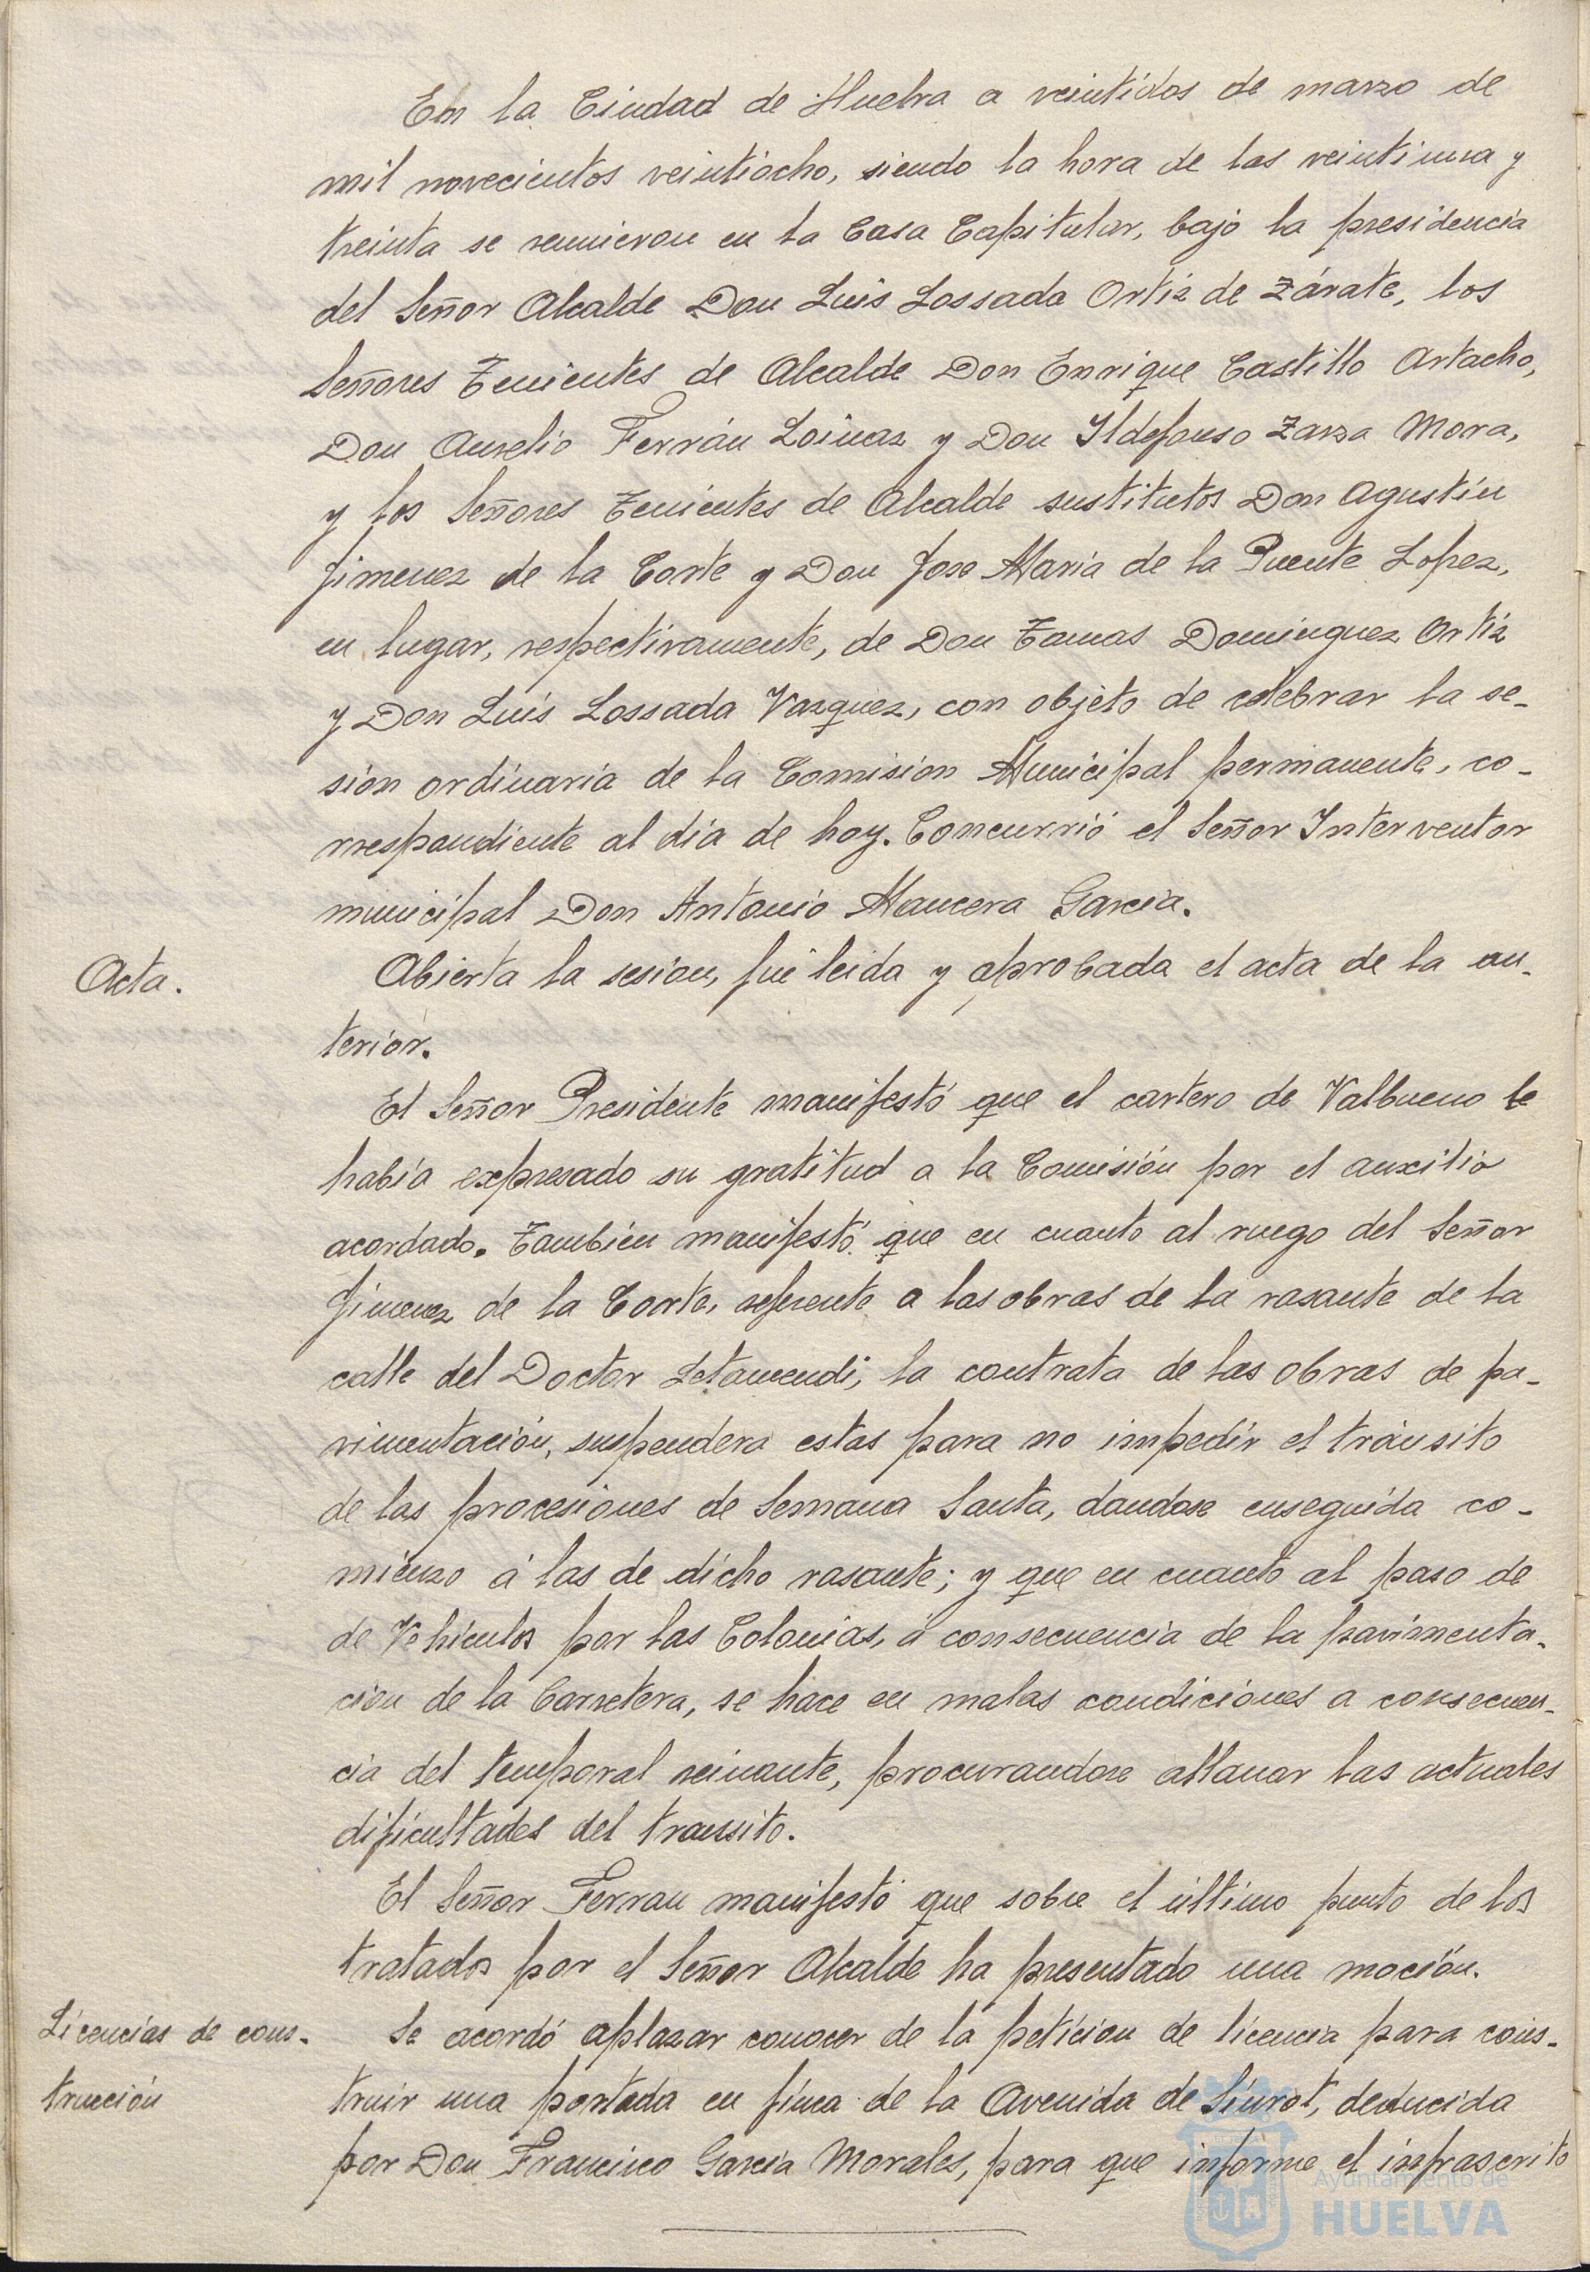 En la Ciudad de Huelva a veintidos de marzo de
mil novecientos veintiocho, siendo la hora de las veintiuna y
treinta se reunieron en la Casa Capitular, bajo la presidencia
del Señor Alcalde Don Luis Lossada Ortiz de Zárate, los
Señores Tenientes de Alcalde Don Enrique Castillo Artacho,
Don Aurelio Ferrán Loinaz y Don Ildefonso Zarza Mora,
y los Señores Tenientes de Alcalde sustitutos Don Agustín
Jimenez de la Corte y Don Jose Maria de la Puente Lopez,
en lugar, respectivamente, de Don Tomas Dominguez Ortiz
y Don Luis Lossada Vazquez, con objeto de celebrar la se-
sion ordinaria de la Comision Municipal permanente, co-
rrespondiente al dia de hoy. Concurrió el Señor Interventor
municipal Don Antonio Mancera Garcia.
Acta.
Abierta la sesion, fue leida y aprobada el acta de la an-
terior.
El Señor Presidente manifestó que el cartero de Valbueno le
había expresado su gratitud a la Comisión por el auxilio
acordado. También manifestó que en cuanto al ruego del Señor
Jimenez de la Corte, referente a las obras de la rasante de la
calle del Doctor Letamendi, la contrata de las obras de pa-
vimentación, suspendera estas para no impedir el tránsito
de las procesiones de Semana Santa, dandose enseguida co-
mienzo á las de dicho rasante; y que en cuanto al paso de
de Vehiculos por las Colonias, á consecuencia de la pavimenta-
cion de la Carretera, se hace en malas condiciones a consecuen-
cia del temporal reinante, procurandose allanar las actuales
dificultades del transito.
El Señor Ferran manifestó que sobre el último punto de los
tratados por el Señor Alcalde ha presentado una moción.
Licencias de cons-
trucción
Se acordó aplazar conocer de la peticion de licencia para cons-
truir una portada en finca de la Avenida de Siurot, deducida
por Don Francisco Garcia Morales, para que informe el infrascrito
Ayuntamiento de
HUELVA